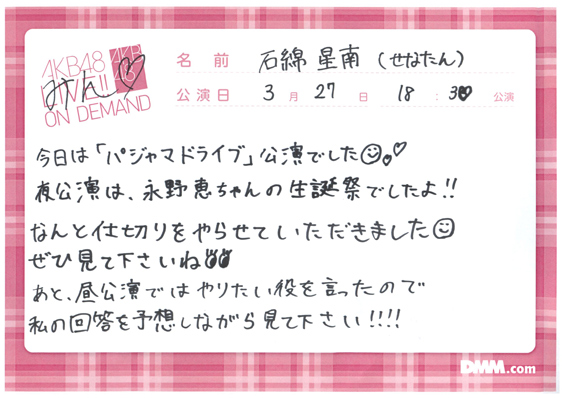 AKB48
LIVE!!
ON DEMAND
AKB
48
名前 石綿星南(せなたん)
公演日 3月27日 18:30公演
今日は「パジャマドライブ」公演でした
夜公演は、永野恵ちゃんの生誕祭でしたよ!!
なんと仕切りをやらせていただきました
ぜひ見て下さいね
あと、昼公演ではやりたい役を言ったので
私の回答を予想しながら見て下さい!!!!
DMM.com